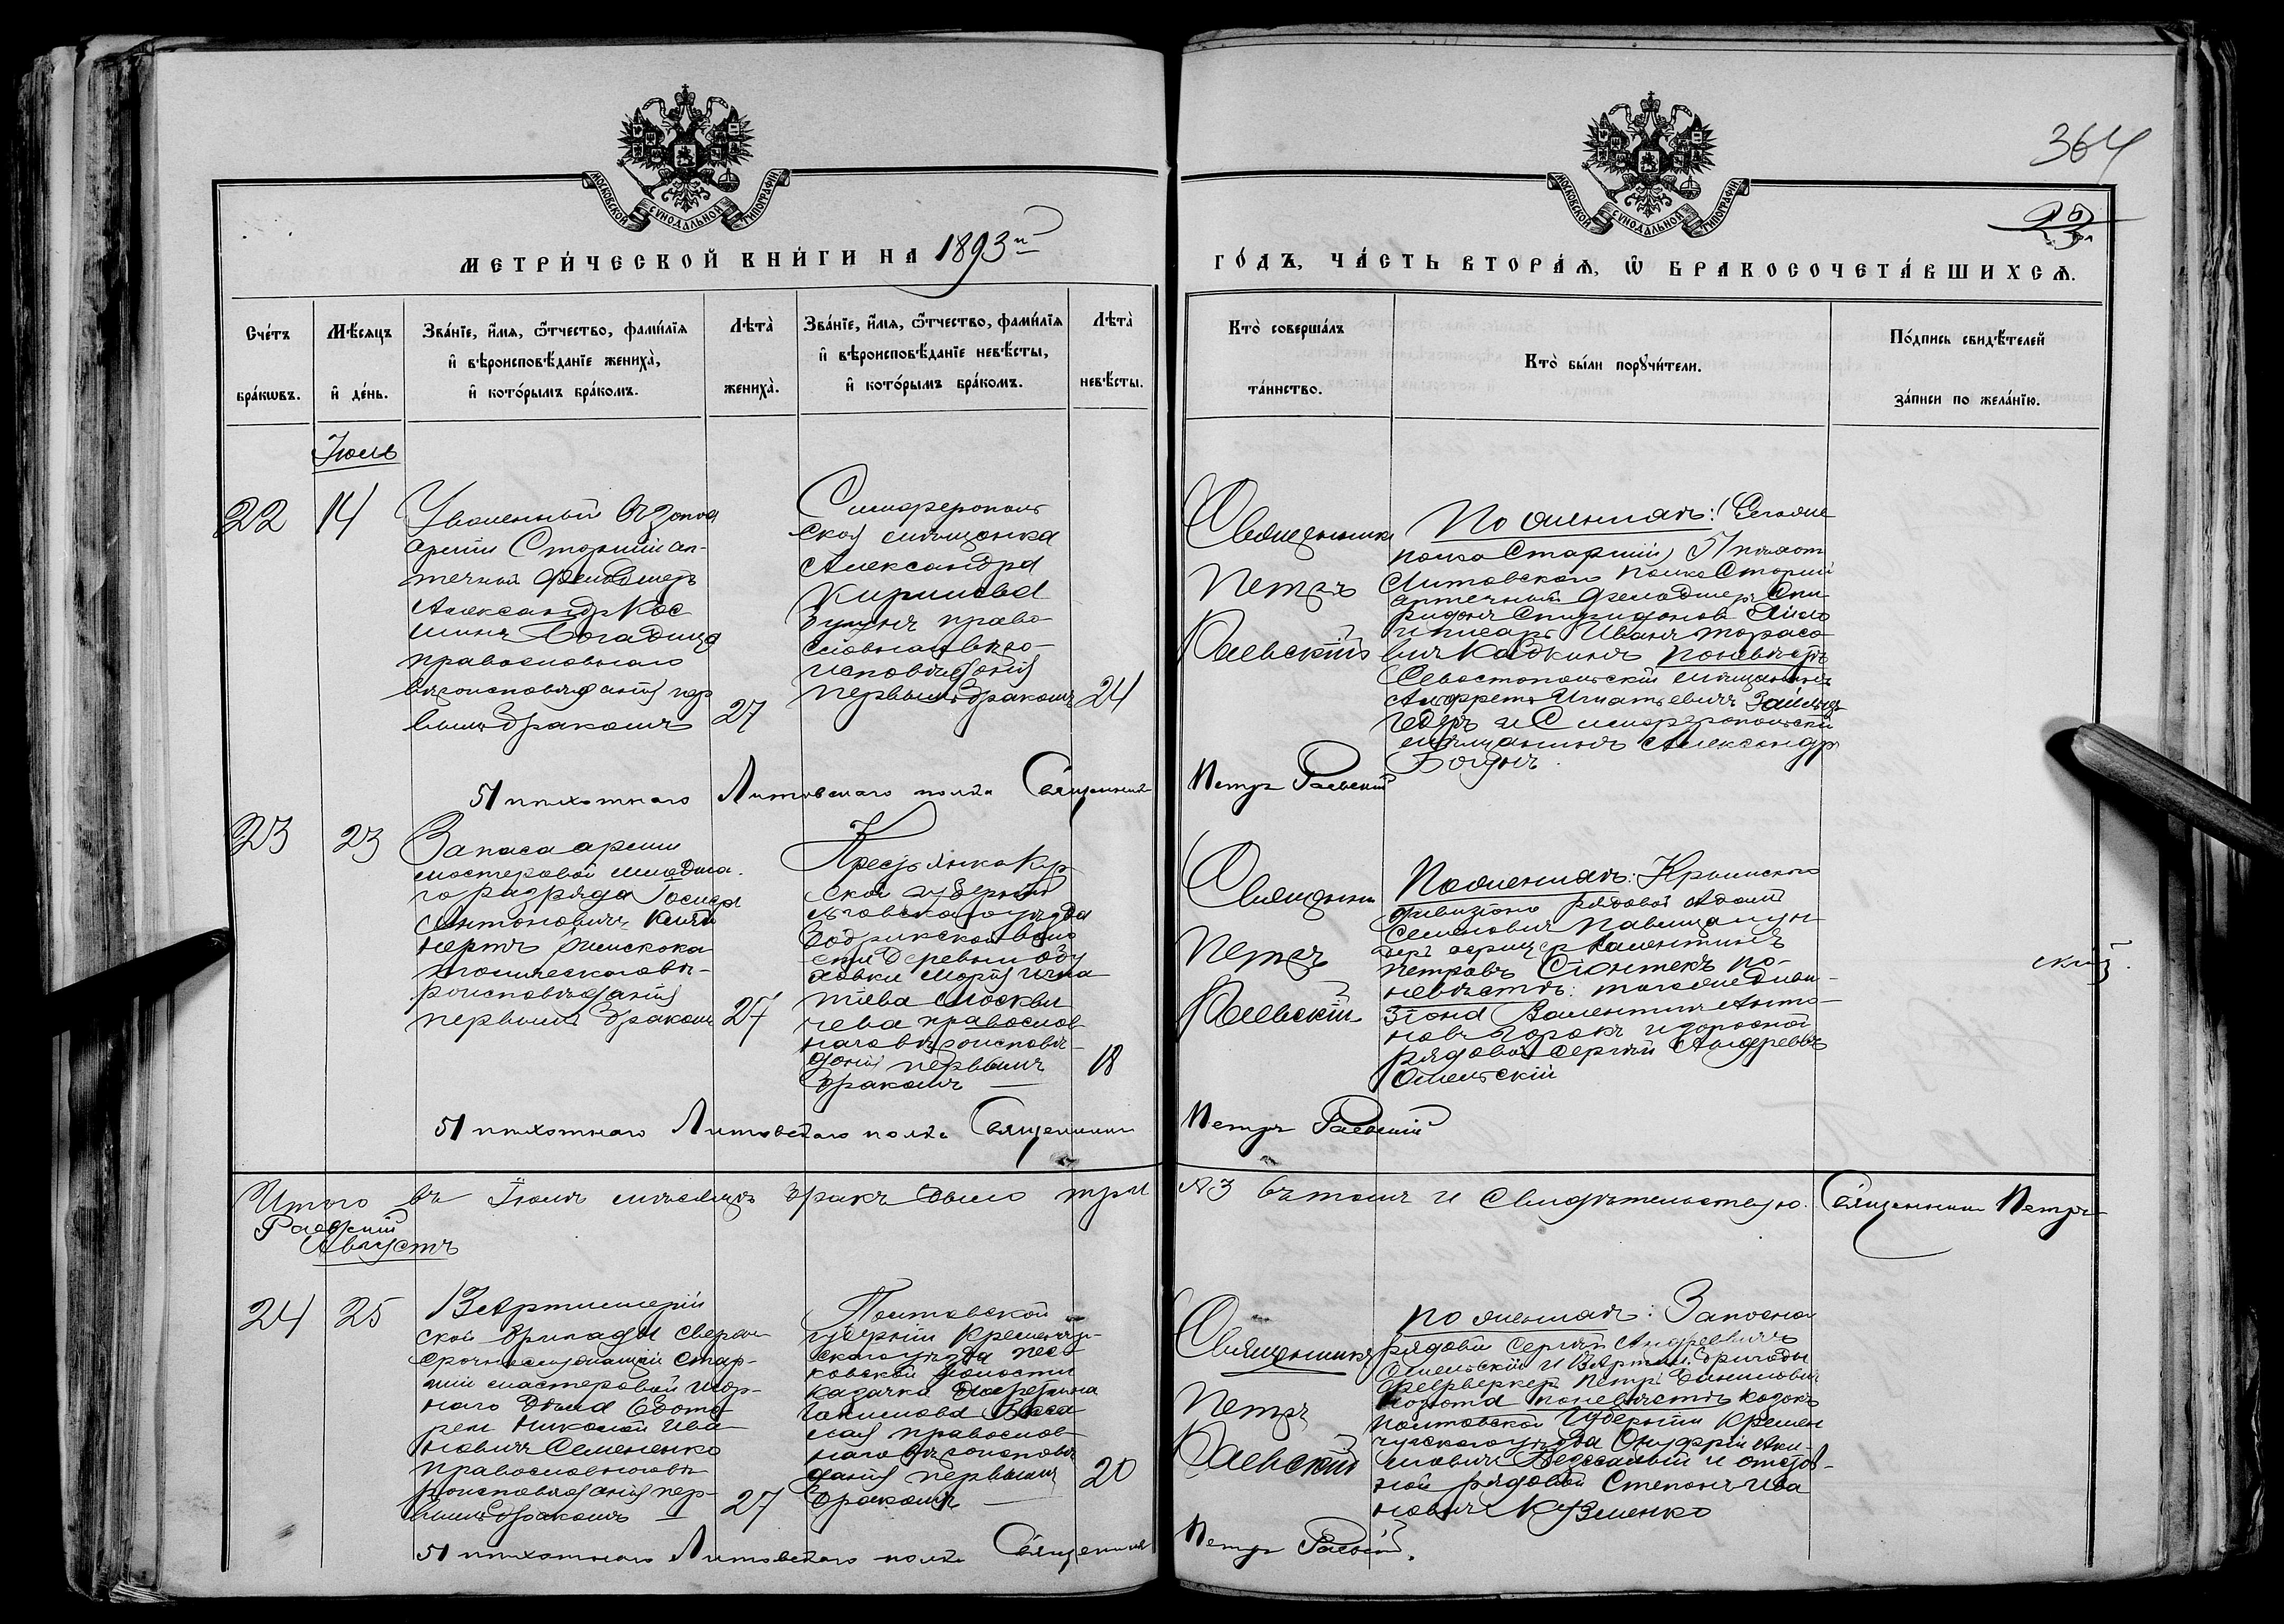 364
МОСКОВСКОЙ СѴНОДАЛЬНОЙ ТИПОГРАФІИ
МОСКОВСКОЙ СѴНОДАЛЬНОЙ ТИПОГРАФІИ
МЕТРИ́ЧЕСКОЙ КНИ́ГИ НА 1893й
ГО́ДЪ, ЧА́СТЬ ВТОРА́Ѧ, Ѡ҆ БРАКОСОЧЕТА́ВШИХСѦ.
Сче́тъ
бра́кѡвъ.
Мѣ́сяцъ
и҆ де́нь.
Зва́нїе, и҆́мя, ѻ҆́тчество, фами́лїя
и҆ вѣроисповѣ́данїе жениха̀,
и҆ кото́рымъ бра́комъ.
Лѣта̀
жениха̀.
Зва́нїе, и҆́мя, ѻ҆́тчество, фами́лїя
и҆ вѣроисповѣ́данїе невѣ́сты,
и҆ кото́рымъ бра́комъ.
Лѣта̀
невѣ́сты.
Кто̀ соверша́лъ
та́инство.
Кто̀ бы́ли порꙋчи́тели.
По́дпись свидѣ́телей
за́писи по жела́нїю.
Іюль
22
14
Уволенный въ запас
арміи Старшій ап-
течный фельдшеръ
Александръ Кос
православнаго
вѣроисповѣданія пер
вымъ бракомъ
27
Симферополь
ская мѣщанка
Александра
Кирилова
право-
славнаго вѣро-
исповѣданія
первымъ бракомъ
24
Священникъ
Петръ
Раевскій
По женихѣ:
полка Старшій 51 пѣхот
Литовскаго полка Старшій
аптечный фельдшеръ Спи
ридонъ Спиридоновъ
и писарь Иванъ Тарасо
вичъ Кадкинъ по невѣстѣ
Севастопольскій мѣщанинъ
Игнатьевичъ
и Симферопольскій
мѣщанинъ Александръ
51 пѣхотнаго Литовскаго полка Священникъ
Петръ Раевскій
23
23
Запаса арміи
мастеровой младша
го разряда
Антоновичъ
римско ка
толическаго вѣ-
роисповѣданія
первымъ бракомъ
27
Крестьянка Кур
ской губерніи
Льговскаго уѣзда
воло
сти деревни
Марія Игна
тіева Москви
чева православ
наго вѣроисповѣ
данія первымъ
бракомъ —
18
Священникъ
Петръ
Раевскій
По женихѣ: Крымскаго
дивизіона рядовой Адамъ
Семеновичъ
Валентинъ
Петровъ Сіонтекъ по
невѣстѣ: того же диви-
зіона Валентинъ Анто-
новъ и запасной
рядовой Сергѣй Андреевъ
Омельскій
скій.
51 пѣхотнаго Литовскаго полка Священникъ
Петръ Раевскій
Итого въ Іюлѣ мѣсяцѣ бракъ было три
№3 въ томъ и свидѣтельствую. Священникъ Петръ
Раевскій
Августъ
24
25
13 Артиллерій
ской бригады сверхъ
срочнослужащій стар-
шій мастеровой
наго дѣла
Николай Ива
новичъ Семененко
православнаго вѣ
роисповѣданія пер-
вымъ бракомъ —
27
Полтавской
губерніи Кременчуг-
скаго уѣзда Пес
ковской волости
казачка
Якимова
православ-
наго вѣроисповѣ
данія первымъ
бракомъ —
20
Священникъ
Петръ
Раевскій
По женихѣ: Запасной
рядовой Сергѣй Андреевичъ
Омельскій и 13 Артил. бригады
фейерверкеръ Петръ
по невѣстѣ казакъ
Полтавской губерніи Кремен
чугскаго уѣзда Онуфрій Яки-
мовичъ и отстав-
ной рядовой Степанъ Ива
новичъ Кузменко
51 пѣхотнаго Литовскаго полка Священникъ
Петръ Раевскій.